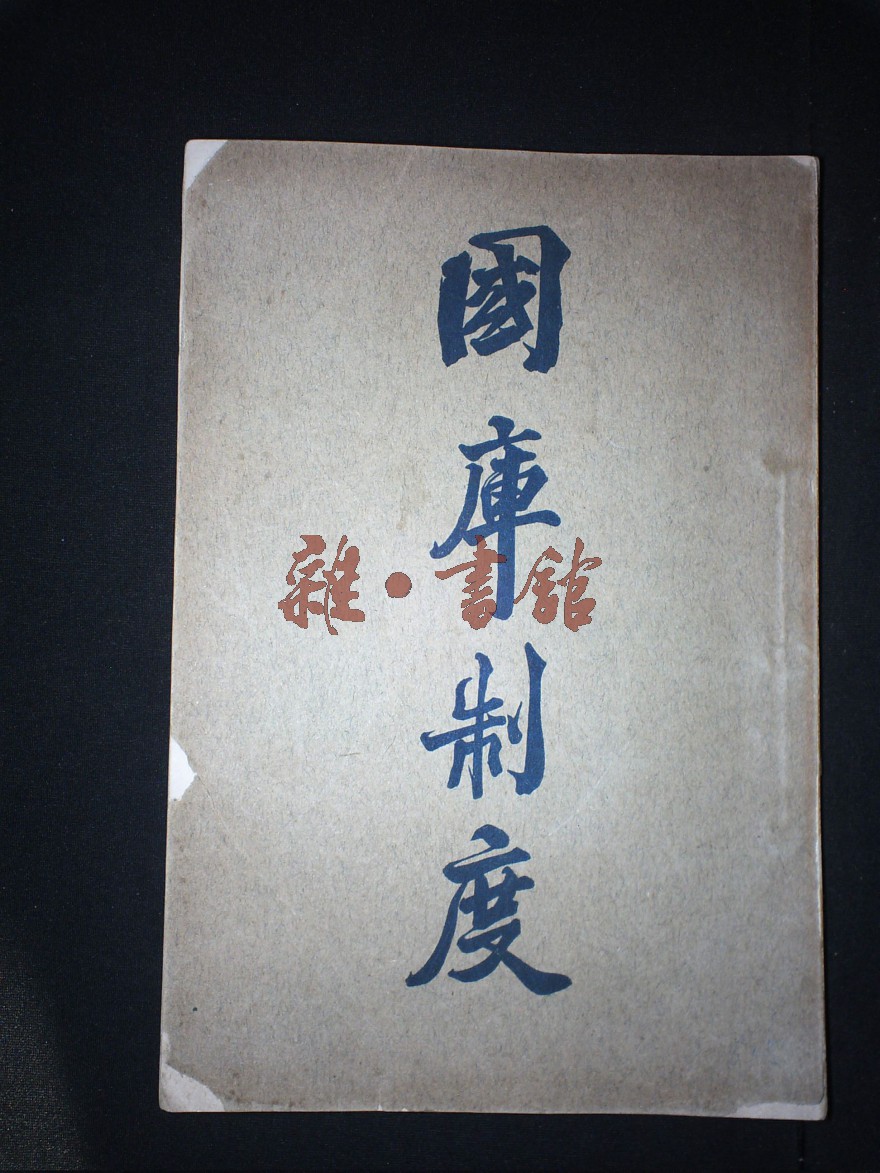 國庫制度
雜·書館